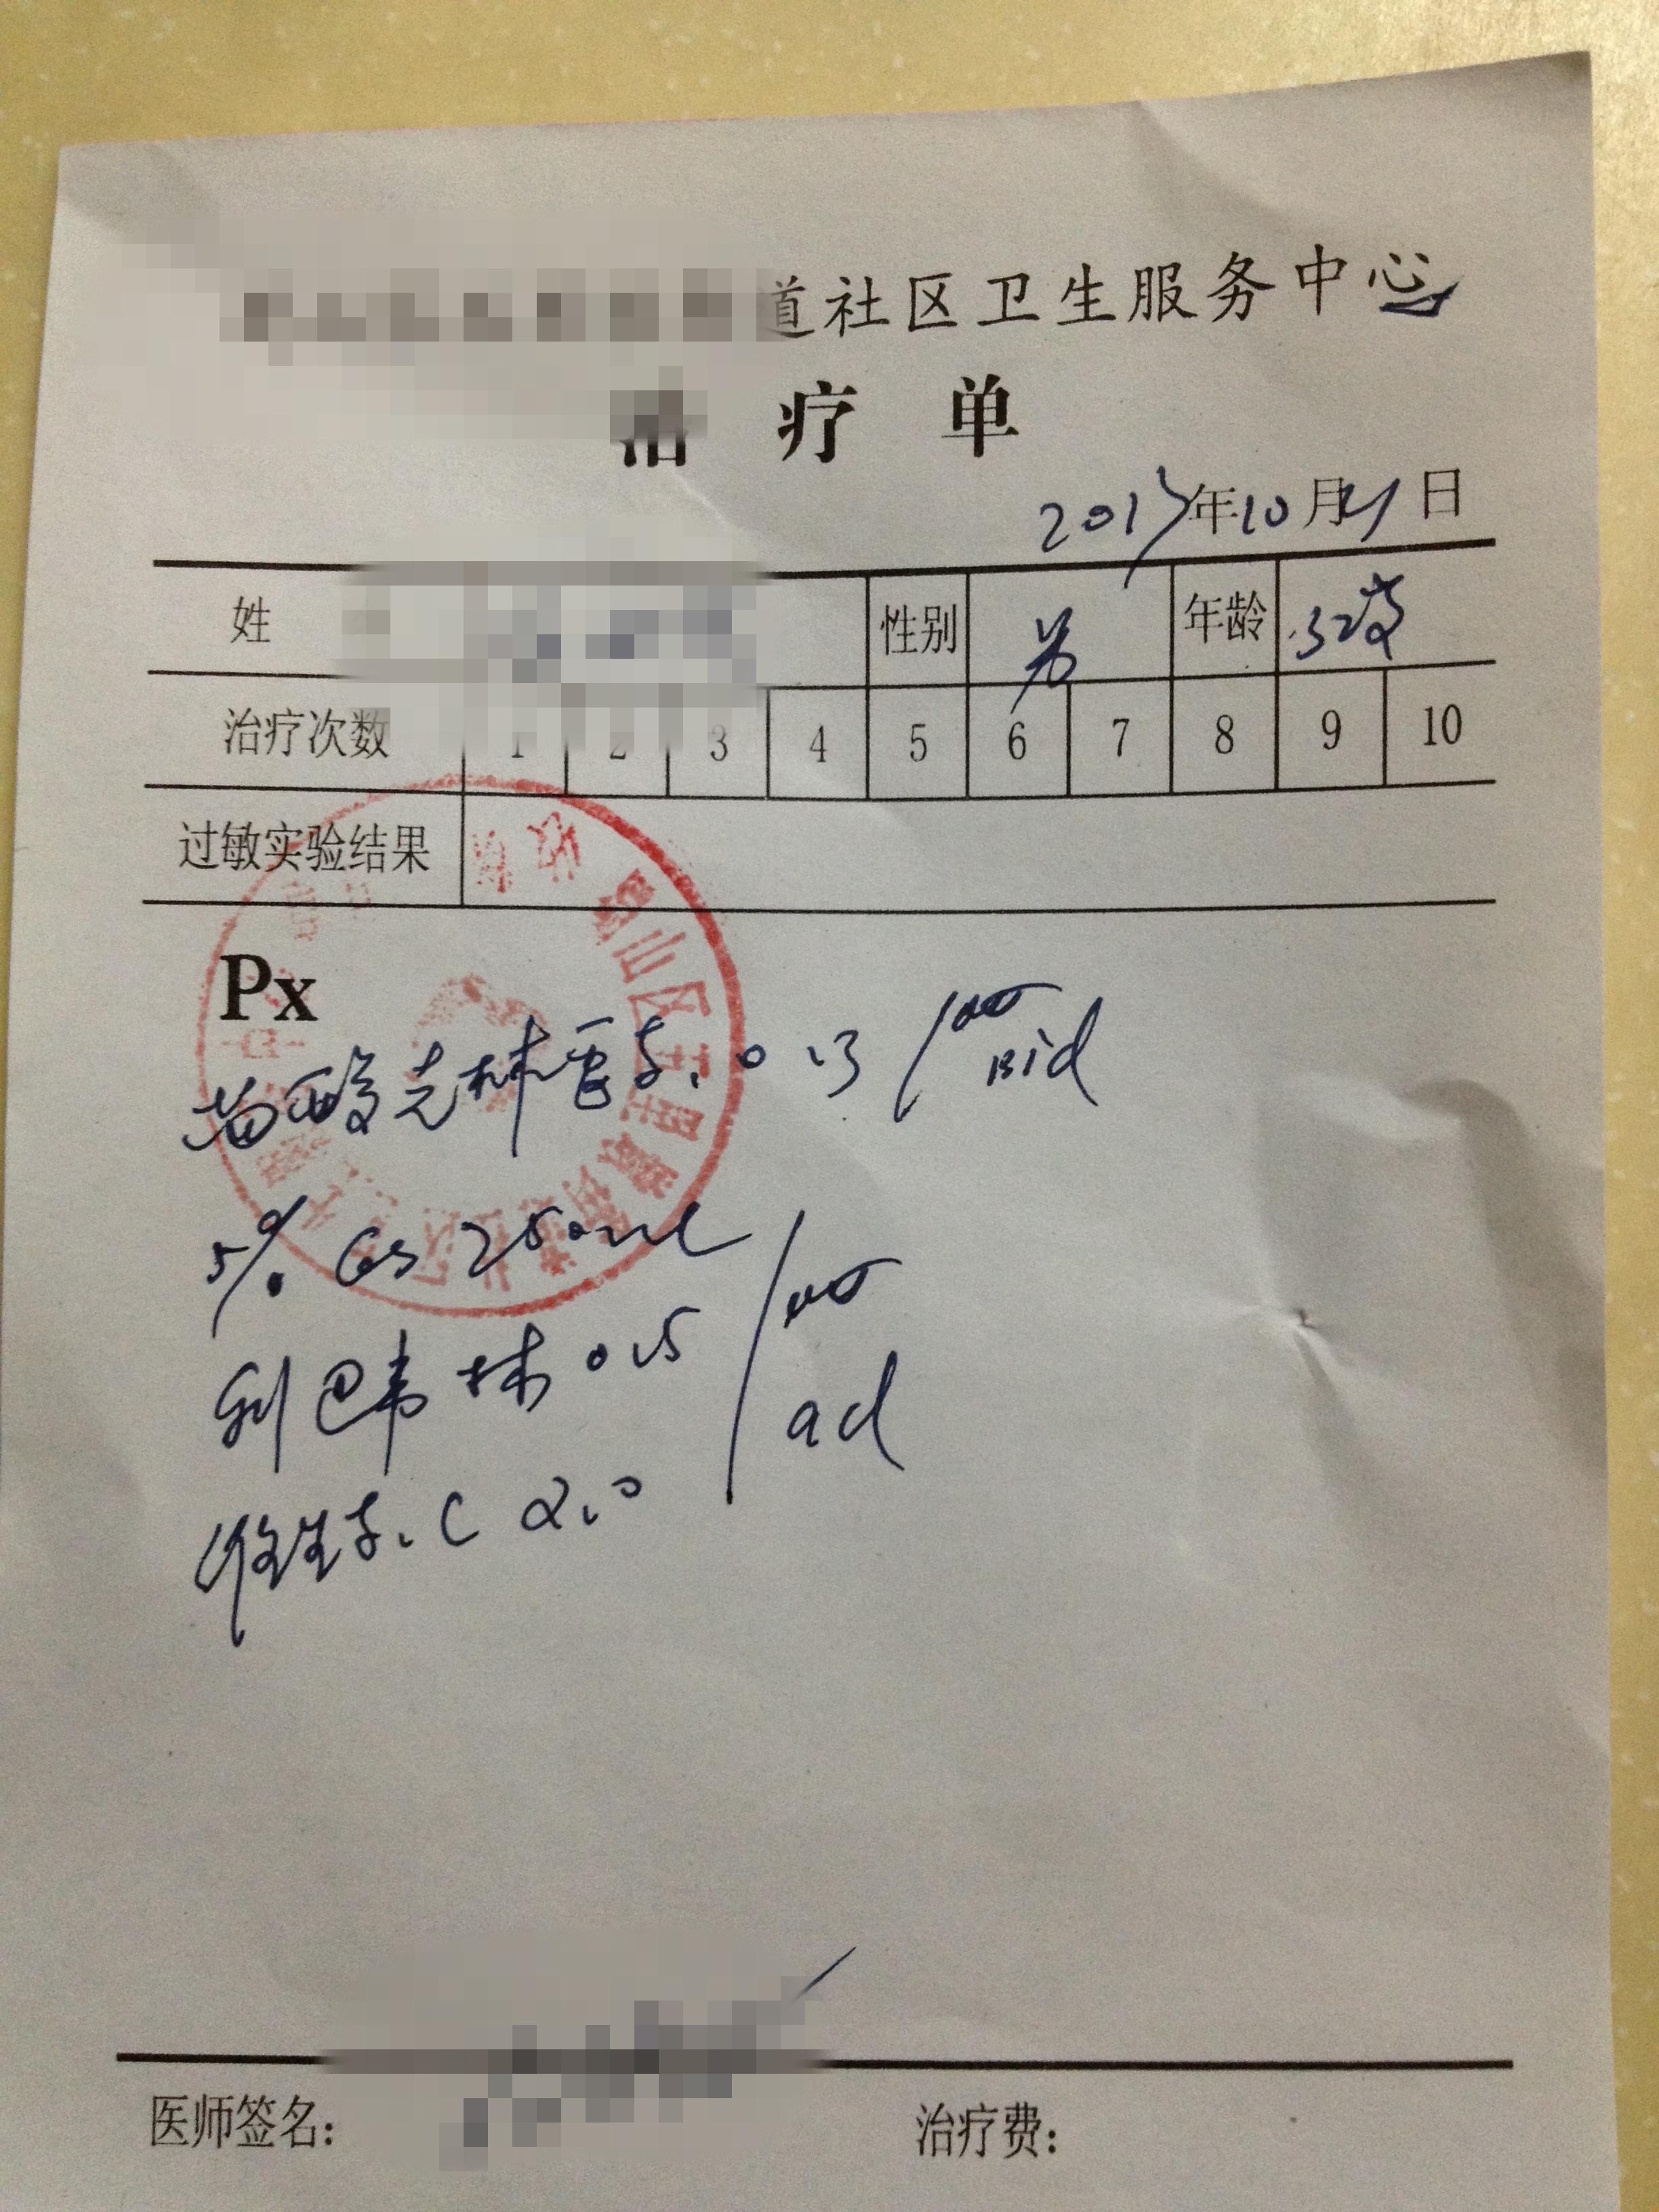 道社区卫生服务中心
治 疗 单
2013年10月21日
姓 性别 男 年龄 32岁
治疗次数 1 2 3 4 5 6 7 8 9 10
过敏实验结果
Px
酸克林霉素 Bid
5% GS 250ml
利巴韦林 0.5
qd
维生素C 2.0
医师签名: 治疗费:
山区